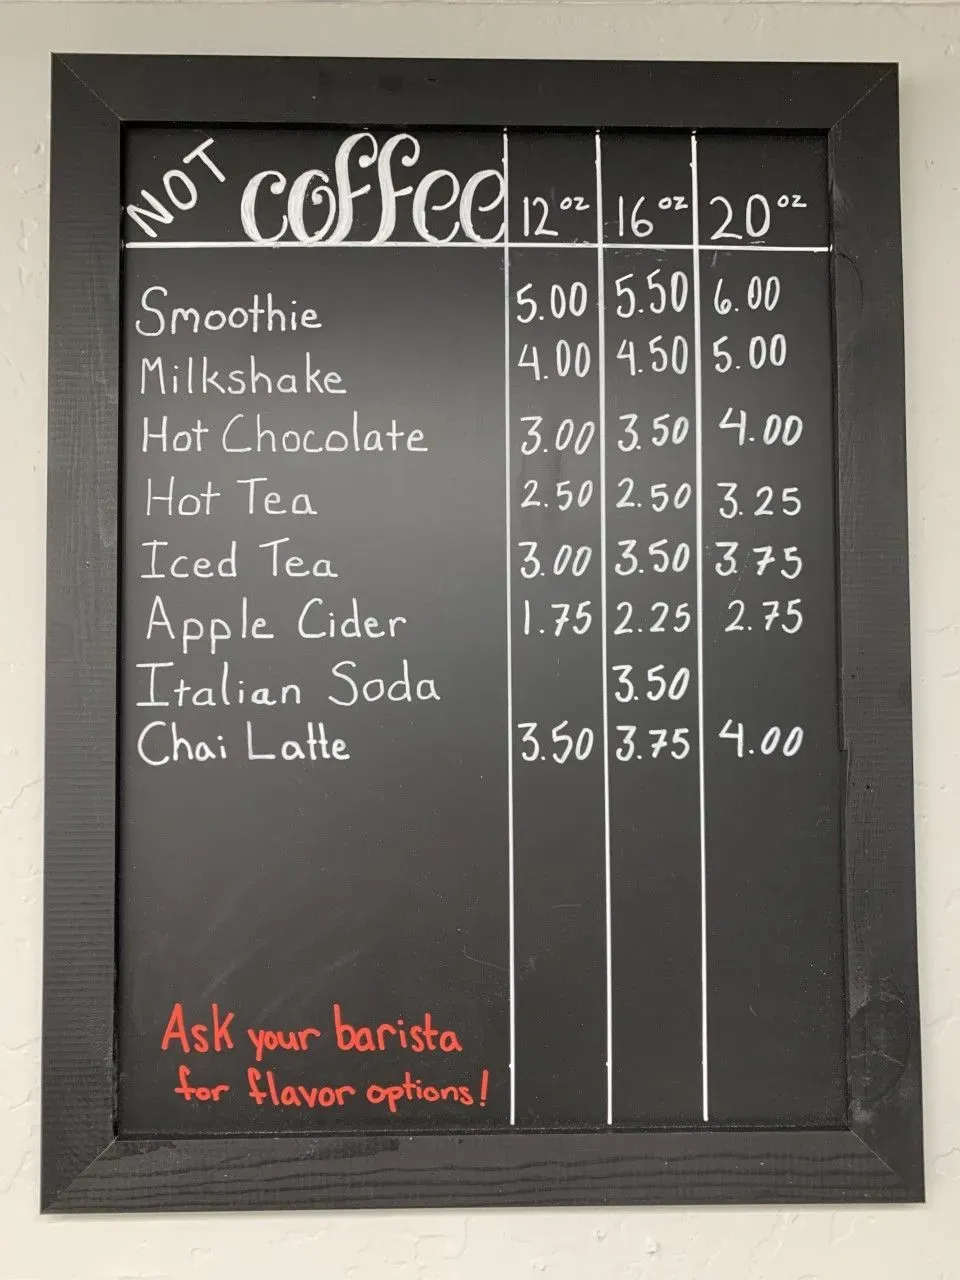 NOT coffee 12 oz 16 oz 20 oz
Smoothie 5.00 5.50 6.00
Milkshake 4.00 4.50 5.00
Hot Chocolate 3.00 3.50 4.00
Hot Tea 2.50 2.50 3.25
Iced Tea 3.00 3.50 3.75
Apple Cider 1.75 2.25 2.75
Italian Soda 3.50
Chai Latte 3.50 3.75 4.00
Ask your barista
for flavor options!